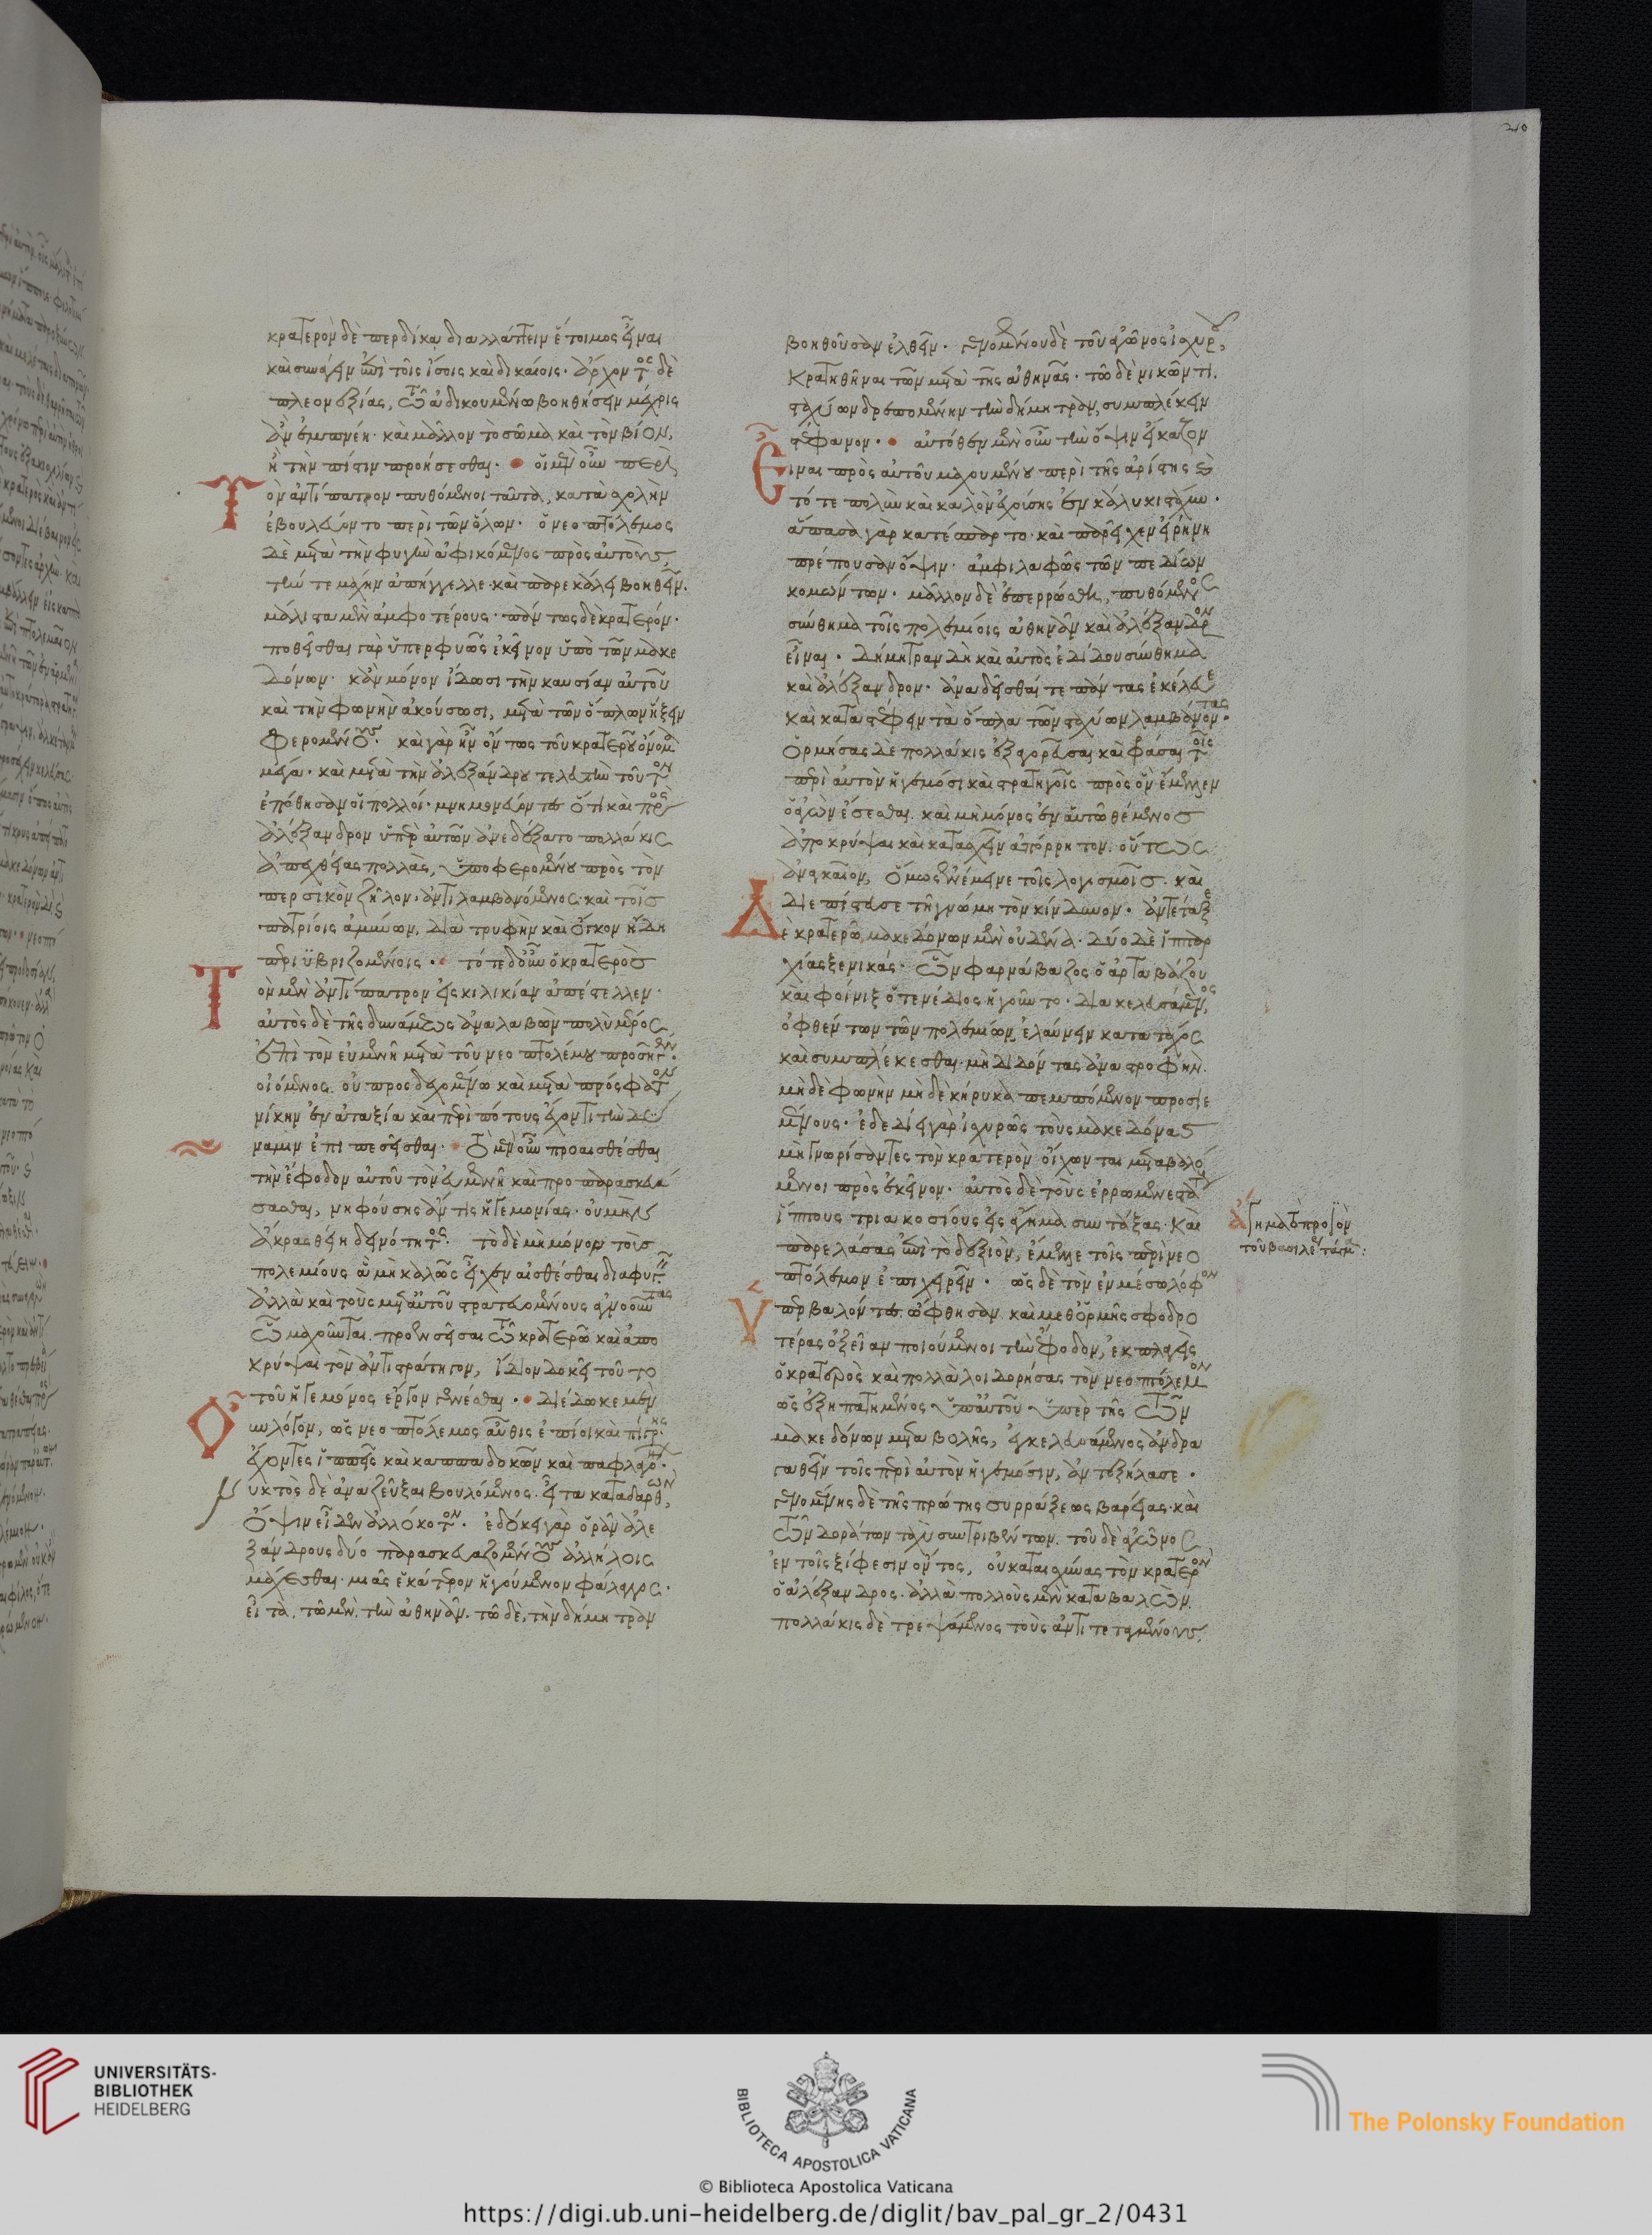 κρατερὸν δὲ περδίκα διαλλάττειν ἕτοιμος εἶναι
καὶ συνάγειν ἐπὶ τοῖς ἴσοις καὶ δικαίοις· ἄρχοντος δὲ
πλεονεξίας, τῶ ἀδικουμένω βοηθήσειν μέχρις
ἂν ἐμπνέη· καὶ μᾶλλον τὸ σῶμα καὶ τὸν βίον,
ἢ τὴν πίστιν προήσεσθαι· οἱ μὲν οὖν περὶ
τὸν ἀντίπατρον πυθόμενοι ταῦτα, κατὰ σχολὴν
ἐβουλεύοντο περὶ τῶν ὅλων· ὁ νεοπτόλεμος
δὲ μετὰ τὴν φυγὴν ἀφικόμενος πρὸς αὐτοὺς,
τήν τε μάχην ἀπήγγελλε· καὶ παρεκάλει βοηθεῖν·
μάλιστα μὲν ἀμφοτέρους· πάντως δὲ κρατερόν·
ποθεῖσθαι γὰρ ὑπερφυῶς ἐκεῖνον ὑπὸ τῶν μακε
δόνων· κἂν μόνον ἴδωσι τὴν καυσίαν αὐτοῦ
καὶ τὴν φωνὴν ἀκούσωσι, μετὰ τῶν ὅπλων ἥξειν
φερομένους· καὶ γὰρ ἦν ὄντως τοῦ κρατεροῦ ὄνομα
μέγα· καὶ μετὰ τὴν ἀλεξάνδρου τελευτὴν τοῦτον
ἐπόθησαν οἱ πολλοί· μνημονεύοντες ὅτι καὶ πρὸς
ἀλέξανδρον ὑπὲρ αὐτῶν ἀνεδέξατο πολλάκις
ἀπεχθείας πολλὰς, ὑποφερομένου πρὸς τὸν
περσικὸν ζῆλον· ἀντιλαμβανόμενος καὶ τοῖς
πατρίοις ἀμύνων, διὰ τρυφὴν καὶ ὄγκον ἤδη
περιϋβριζομένοις· τότε δ' οὖν ὁ κρατερὸς
τὸν μὲν ἀντίπατρον εἰς κιλικίαν ἀπέστελλεν·
αὐτὸς δὲ τῆς δυνάμεως ἀναλαβὼν πολὺ μέρος,
ἐπὶ τὸν εὐμενῆ μετὰ τοῦ νεοπτολέμου προσῆγεν·
οἰόμενος οὐ προσδεχομένω καὶ μετὰ πρόσφατον
νίκην ἐν ἀταξία καὶ περὶ πότους ἔχοντι τὴν δύ
ναμιν ἐπιπεσεῖσθαι· τὸ μὲν οὖν προαισθέσθαι
τὴν ἔφοδον αὐτοῦ τὸν εὐμενῆ καὶ προπαρασκευά
σασθαι, νηφούσης ἄν τις ἡγεμονίας· οὐ μὴν
ἄκρας θείη δεινότητος· τὸ δὲ μὴ μόνον τοὺς
πολεμίους ἃ μὴ καλῶς εἶχεν αἰσθέσθαι διαφυγεῖν·
ἀλλὰ καὶ τοὺς μετ' αὐτοῦ στρατευομένους ἀγνοοῦντας
τίνι μαχοῦνται προενσεῖσαι τῶ κρατερῶ καὶ ἀπο
κρύψαι τὸν ἀντιστράτηγον, ἴδιον δοκεῖ τοῦτο
τοῦ ἡγεμόνος ἔργον γενέσθαι· διέδωκε μὲν
οὖν λόγον, ὡς νεοπτόλεμος αὖθις ἐπίοι καὶ πίγρης
ἔχοντες ἱππεῖς καὶ καππαδοκῶν καὶ παφλαγόνων·
νυκτὸς δὲ ἀναζεῦξαι βουλόμενος· εἶτα καταδαρθὼν,
ὄψιν εἶδεν ἀλλόκοτον· ἐδόκει γὰρ ὁρᾶν ἀλε
ξάνδρους δύο παρασκευαζομένους ἀλλήλοις
μάχεσθαι· μιᾶς ἑκάτερον ἡγούμενον φάλαγγος·
εἶτα, τῶ μὲν, τὴν ἀθηνᾶν· τῶ δὲ, τὴν δήμητραν
βοηθοῦσαν ἐλθεῖν· γενομένου δὲ τοῦ ἀγῶνος ἰσχυροῦ,
κρατηθῆναι τῶν μετὰ τῆς ἀθηνᾶς· τῶ δὲ νικῶντι,
σταχύων δρεπομένην τὴν δήμητραν, συμπλέκειν
στέφανον· αὐτόθεν μὲν οὖν τὴν ὄψιν εἴκαζεν
εἶναι πρὸς αὐτοῦ μαχουμένου περὶ τῆς ἀρίστης καὶ
τότε πολὺν καὶ καλὸν ἐχούσης ἐν κάλυκι στάχυν·
ἅπασα γὰρ κατέσπαρτο· καὶ παρεῖχεν εἰρήνη
πρέπουσαν ὄψιν ἀμφιλαφῶς τῶν πεδίων
κομώντων· μᾶλλον δὲ ἐπερρώσθη, πυθόμενος
σύνθημα τοῖς πολεμίοις ἀθηνᾶν καὶ ἀλέξανδρον
εἶναι· δήμητραν δὴ καὶ αὐτὸς ἐδίδου σύνθημα
καὶ ἀλέξανδρον· ἀναδεῖσθαί τε πάντας ἐκέλευε
καὶ καταστέφειν τὰ ὅπλα τῶν σταχύων λαμβάνοντας·
ὁρμήσας δὲ πολλάκις ἐξαγορεῦσαι καὶ φράσαι τοῖς
περὶ αὐτὸν ἡγεμόσι καὶ στρατηγοῖς πρὸς ὃν ἔμελλεν
ὁ ἀγὼν ἔσεσθαι καὶ μὴ μόνος ἐν αὑτῶ θέμενος
ἀποκρύψαι καὶ κατασχεῖν ἀπόρρητον οὕτως
ἀναγκαῖον, ὅμως ἐνέμεινε τοῖς λογισμοῖς καὶ
διεπίστευσε τῆ γνώμη τὸν κίνδυνον· ἀντέταξε
δὲ κρατερῶ, μακεδόνων μὲν οὐδένα· δύο δὲ ἱππαρ
χίας ξενικάς· ὧν φαρνάβαζος ὁ ἀρταβάζου
καὶ φοίνιξ ὁ τενέδιος ἡγοῦντο· διακελευσάμενος,
ὀφθέντων τῶν πολεμίων, ἐλαύνειν κατὰ τάχος
καὶ συμπλέκεσθαι· μὴ διδόντας ἀναστροφὴν·
μὴ δὲ φωνὴν μὴ δὲ κήρυκα πεμπόμενον προσιε
μένους· ἐδεδίει γὰρ ἰσχυρῶς τοὺς μακεδόνας
μὴ γνωρίσαντες τὸν κρατερὸν οἴχωνται μεταβαλό
μενοι πρὸς ἐκεῖνον· αὐτὸς δὲ τοὺς ἐρρωμενεστάτους
ἵππους τριακοσίους εἰς ἄγημα συντάξας· καὶ
παρελάσας ἐπὶ τὸ δεξιὸν, ἔμελλε τοῖς περὶ νεο
πτόλεμον ἐπιχειρεῖν· ὡς δὲ τὸν ἐν μέσω λόφον
ὑπερβαλόντες ὤφθησαν καὶ μεθ' ὁρμῆς σφοδρο
τέρας ὀξεῖαν ποιούμενοι τὴν ἔφοδον, ἐκπλαγεὶς
ὁ κρατερὸς καὶ πολλὰ λοιδορήσας τὸν νεοπτόλεμον
ὡς ἐξηπατημένος ὑπ' αὐτοῦ ὑπὲρ τῆς τῶν
μακεδόνων μεταβολῆς, ἐγκελευσάμενος ἀνδρα
γαθεῖν τοῖς περὶ αὐτὸν ἡγεμόσιν, ἀντεξήλασε·
γενομένης δὲ τῆς πρώτης συρράξεως βαρείας· καὶ
τῶν δοράτων ταχὺ συντριβέντων, τοῦ δὲ ἀγῶνος
ἐν τοῖς ξίφεσιν ὄντος, οὐ καταισχύνας τὸν κρατερὸν
ὁ ἀλέξανδρος· ἀλλὰ πολλοὺς μὲν καταβαλὼν,
πολλάκις δὲ τρεψάμενος τοὺς ἀντιτεταγμένους,
ἄγημα τὸ προϊὸν
τοῦ βασιλέως τάγμα:
UNIVERSITÄTS-
BIBLIOTHEK
HEIDELBERG
BIBLIOTECA APOSTOLICA VATICANA
© Biblioteca Apostolica Vaticana
The Polonsky Foundation
https://digi.ub.uni-heidelberg.de/diglit/bav_pal_gr_2/0431